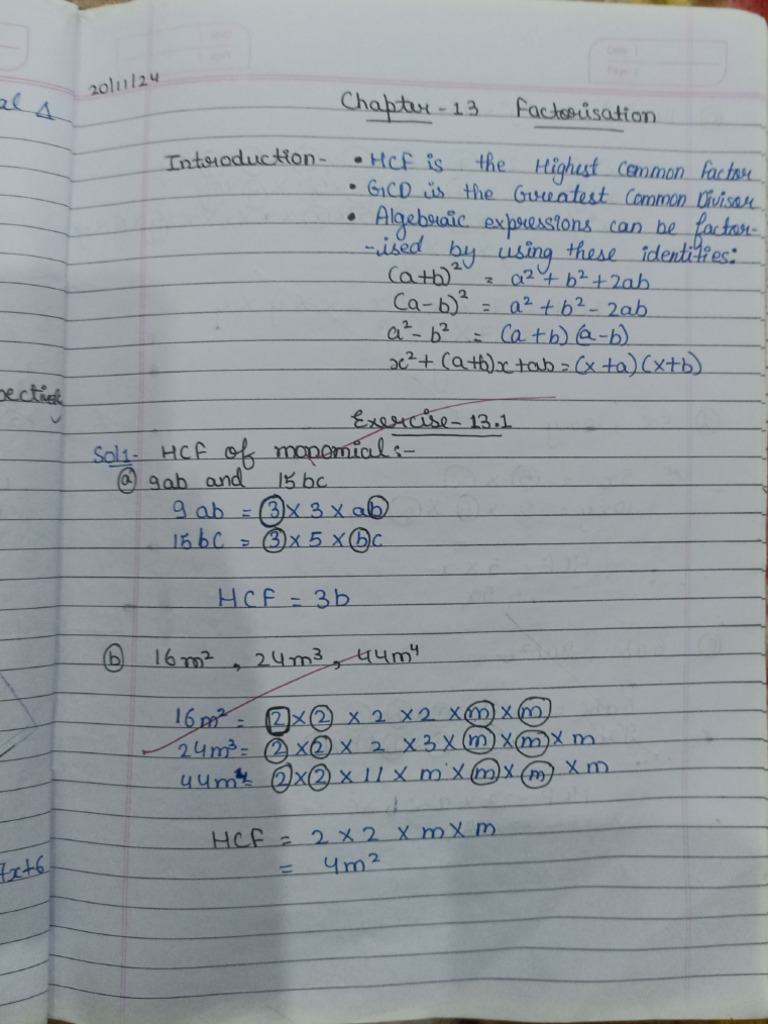 20/11/24
Chapter-13 Factorisation
Introduction- • HCF is the Highest Common Factor
• GCD is the Greatest Common Divisor
• Algebraic expressions can be factor-
-ised by using these identities:
(a+b)² = a² + b² + 2ab
(a-b)² = a² + b² - 2ab
a² - b² = (a+b) (a-b)
x² + (a+b)x + ab = (x+a) (x+b)
Exercise-13.1
Sol1- HCF of monomial:-
ⓐ 9ab and 15bc
9ab = 3 × 3 × ab
15bC = 3 × 5 × bc
HCF = 3b
ⓑ 16m² , 24m³ , 44m⁴
16m² = 2 × 2 × 2 × 2 × m × m
24m³ = 2 × 2 × 2 × 3 × m × m × m
44m⁴ = 2 × 2 × 11 × m × m × m × m
HCF = 2 × 2 × m × m
= 4m²
al Δ
7x+6